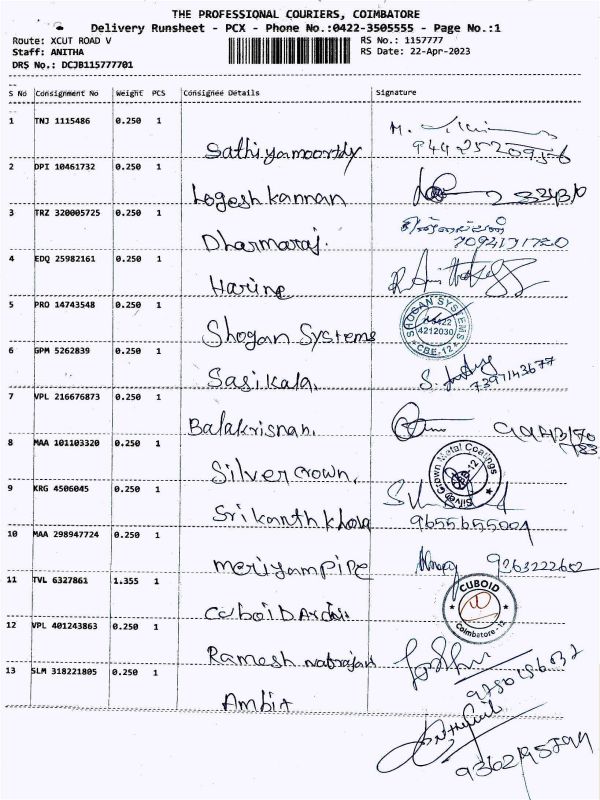 THE PROFESSIONAL COURIERS, COIMBATORE
Delivery Runsheet - PCX - Phone No.:0422-3505555 - Page No.:1
Route: XCUT ROAD V RS No.: 1157777
Staff: ANITHA RS Date: 22-Apr-2023
DRS No.: DCJB115777701
S No Consignment No Weight PCS Consignee Details Signature
1 TNJ 1115486 0.250 1
Sathiyamoorthy 9442520956
2 DPI 10461732 0.250 1
Logesh kannan
3 TRZ 320005725 0.250 1
Dharmaraj.
4 EDQ 25982161 0.250 1
Harine
5 PRO 14743548 0.250 1
Shogan Systems SHOGAN SYSTEMS 0422 4212030 CBE-12
6 GPM 5262839 0.250 1
Sasikala. 7397143677
7 VPL 216676873 0.250 1
Balakrisnan.
8 MAA 101103320 0.250 1
Silvercrown. Silver Crown Metal Coatings CBE-12
9 KRG 4506045 0.250 1
Srikanth khola 9655655004
10 MAA 298947724 0.250 1
meriyampipe 9263222602
11 TVL 6327861 1.355 1
CUBOID Coimbatore-12
12 VPL 401243863 0.250 1
Ramesh natrajan
13 SLM 318221805 0.250 1
Ambit